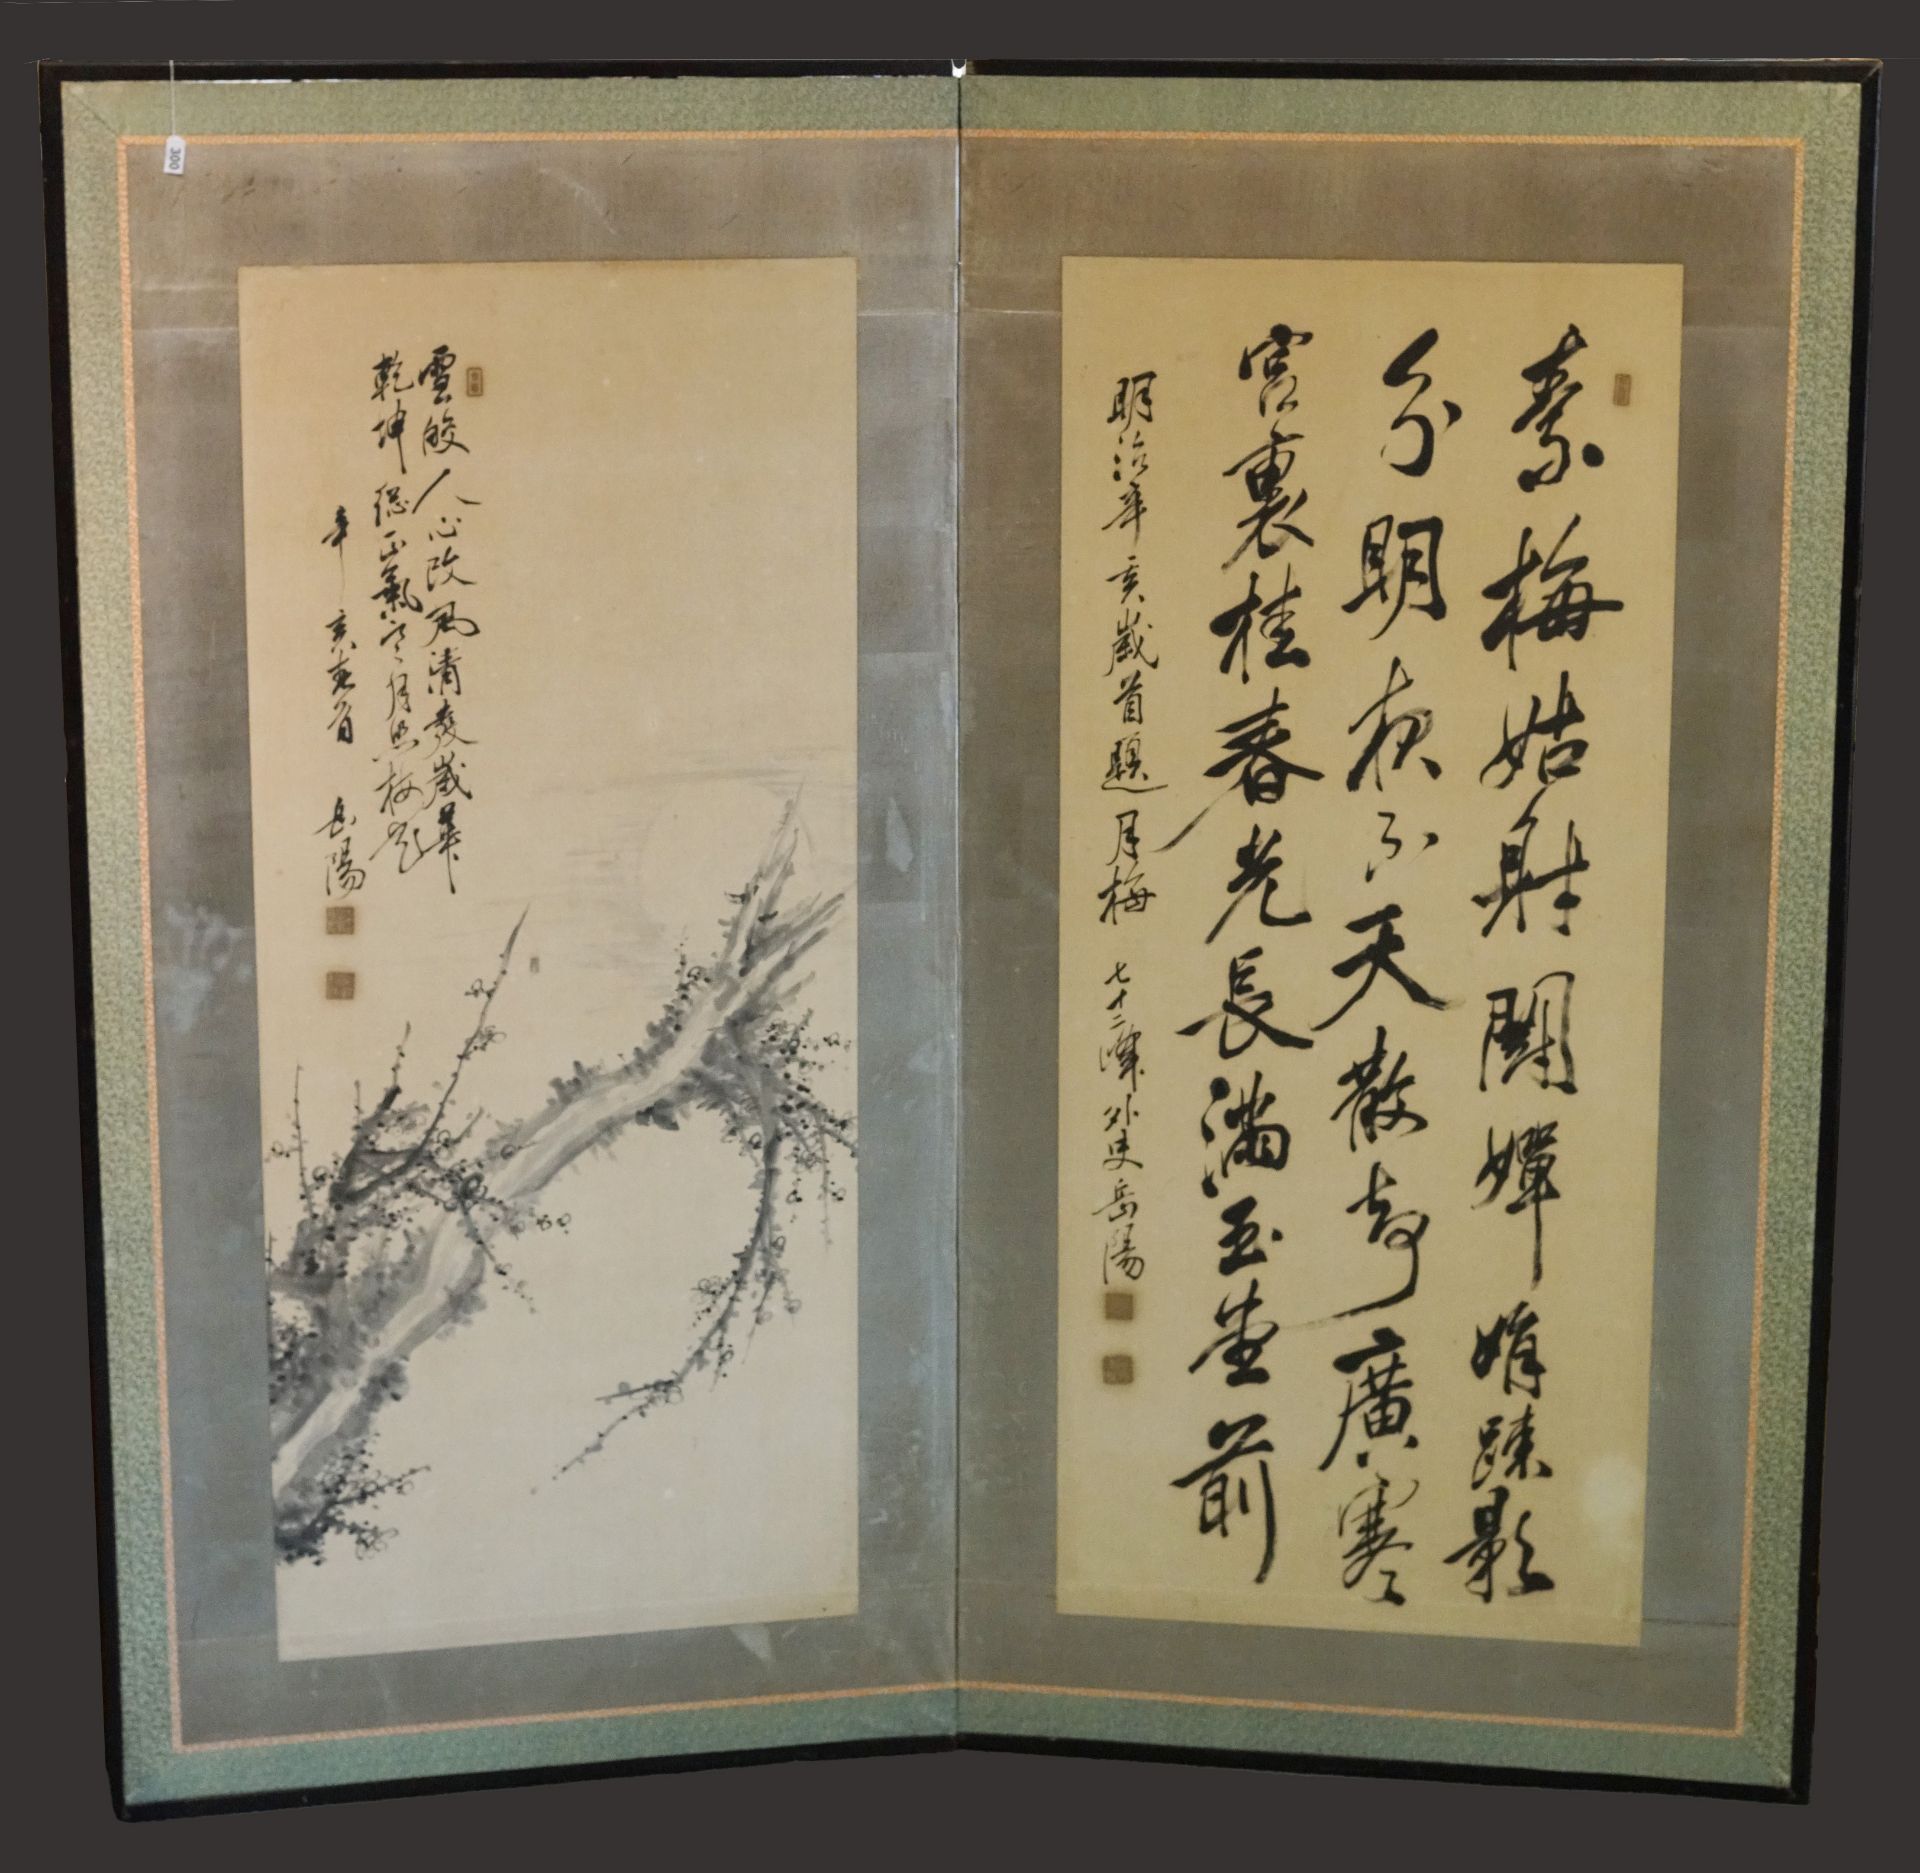 素梅姑射鬪嬋娟疎影
分明夜天散廣寒
宮裏桂春光長滿玉堂前
明治辛亥歲首題月梅 七十二峰外史岳陽
雪皎人心改風清發歲華
乾坤総正氣寒月照梅花
辛亥春首 岳陽
300